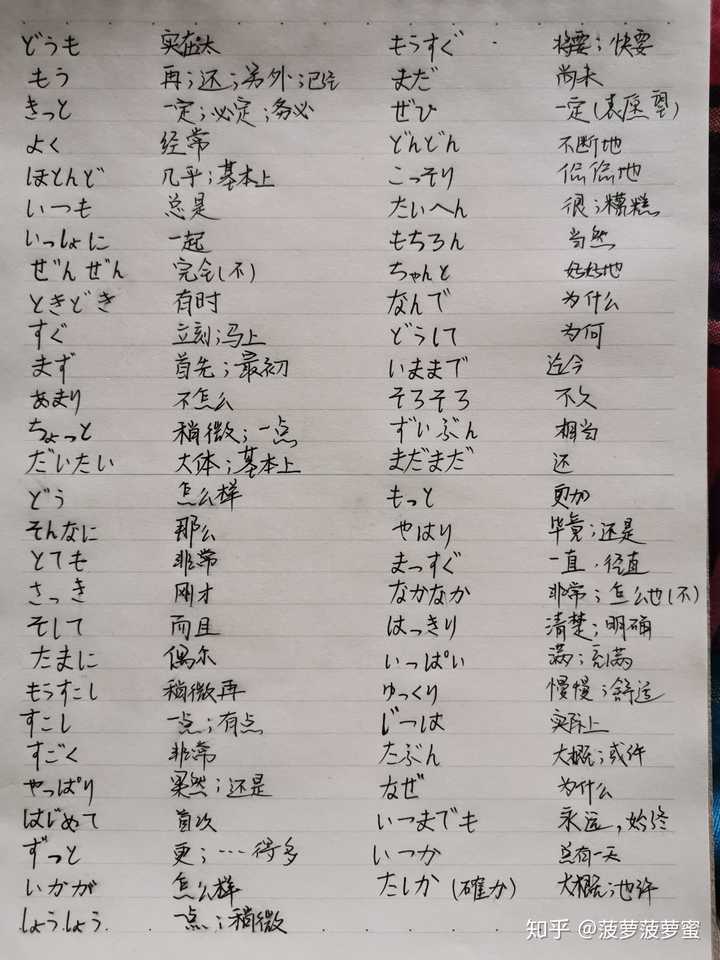 どうも 实在太 もうすぐ 将要；快要
もう 再；还；另外；已经 まだ 尚未
きっと 一定；必定；务必 ぜひ 一定(表愿望)
よく 经常 どんどん 不断地
ほとんど 几乎；基本上 こっそり 偷偷地
いつも 总是 たいへん 很；糟糕
いっしょに 一起 もちろん 当然
ぜんぜん 完全(不) ちゃんと 好好地
ときどき 有时 なんで 为什么
すぐ 立刻；马上 どうして 为何
まず 首先；最初 いままで 迄今
あまり 不怎么 そろそろ 不久
ちょっと 稍微；一点 ずいぶん 相当
だいたい 大体；基本上 まだまだ 还
どう 怎么样 もっと 更加
そんなに 那么 やはり 毕竟；还是
とても 非常 まっすぐ 一直．径直
さっき 刚才 なかなか 非常；怎么也(不)
そして 而且 はっきり 清楚；明确
たまに 偶尔 いっぱい 满；充满
もうすこし 稍微再 ゆっくり 慢慢；舒适
すこし 一点；有点 じつは 实际上
すごく 非常 たぶん 大概；或许
やっぱり 果然；还是 なぜ 为什么
はじめて 首次 いつまでも 永远，始终
ずっと 更；…得多 いつか 总有一天
いかが 怎么样 たしか(確か) 大概；也许
しょうしょう 一点；稍微
知乎 @菠萝菠萝蜜